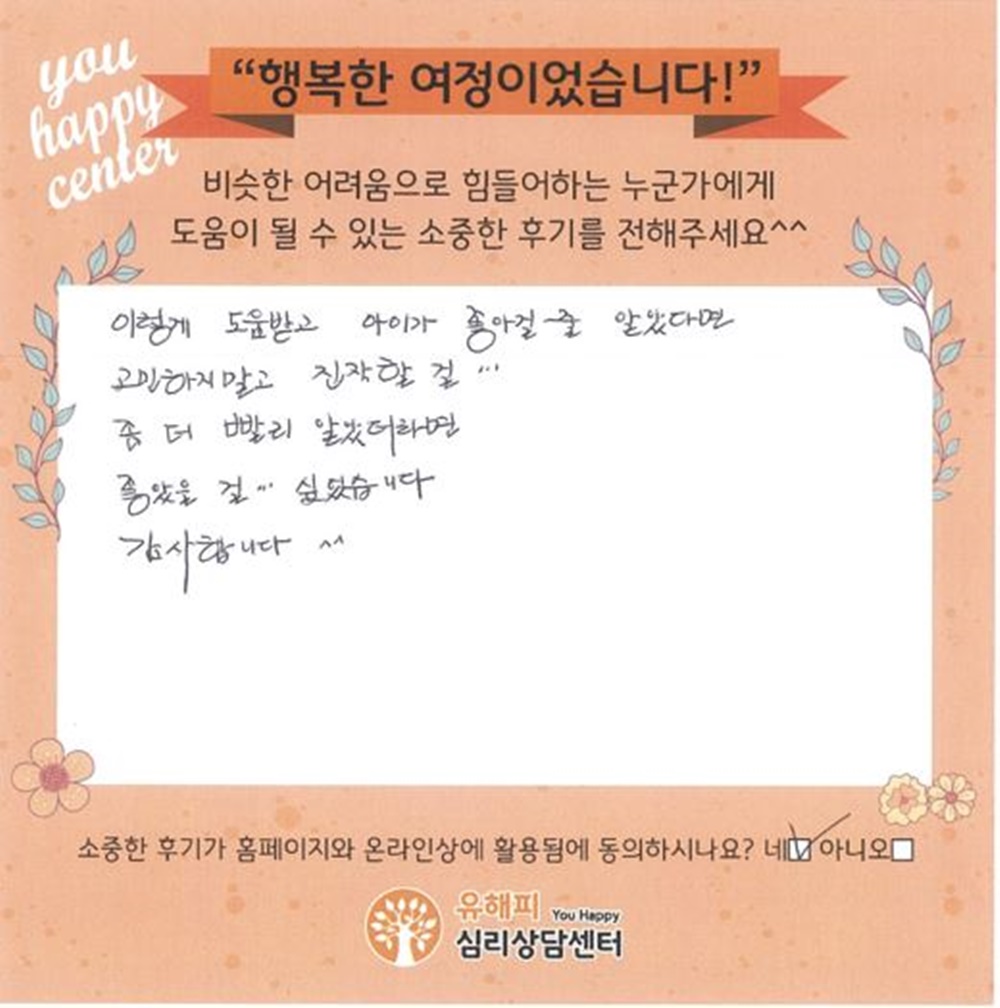 you
happy
center
“행복한 여정이었습니다!”
비슷한 어려움으로 힘들어하는 누군가에게
도움이 될 수 있는 소중한 후기를 전해주세요^^
이렇게 도움받고 아이가 좋아질 줄 알았다면
고민하지말고 진작할 걸 ...
좀 더 빨리 알았더라면
좋았을 걸... 싶었습니다
감사합니다 ^^
소중한 후기가 홈페이지와 온라인상에 활용됨에 동의하시나요? 네☑ 아니오☐
유해피 You Happy
심리상담센터